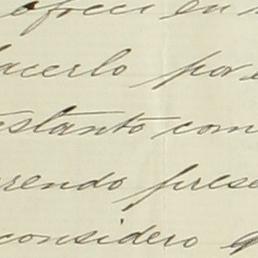 ofreci en
hacerlo por
estanto com
rendo prese
considero q